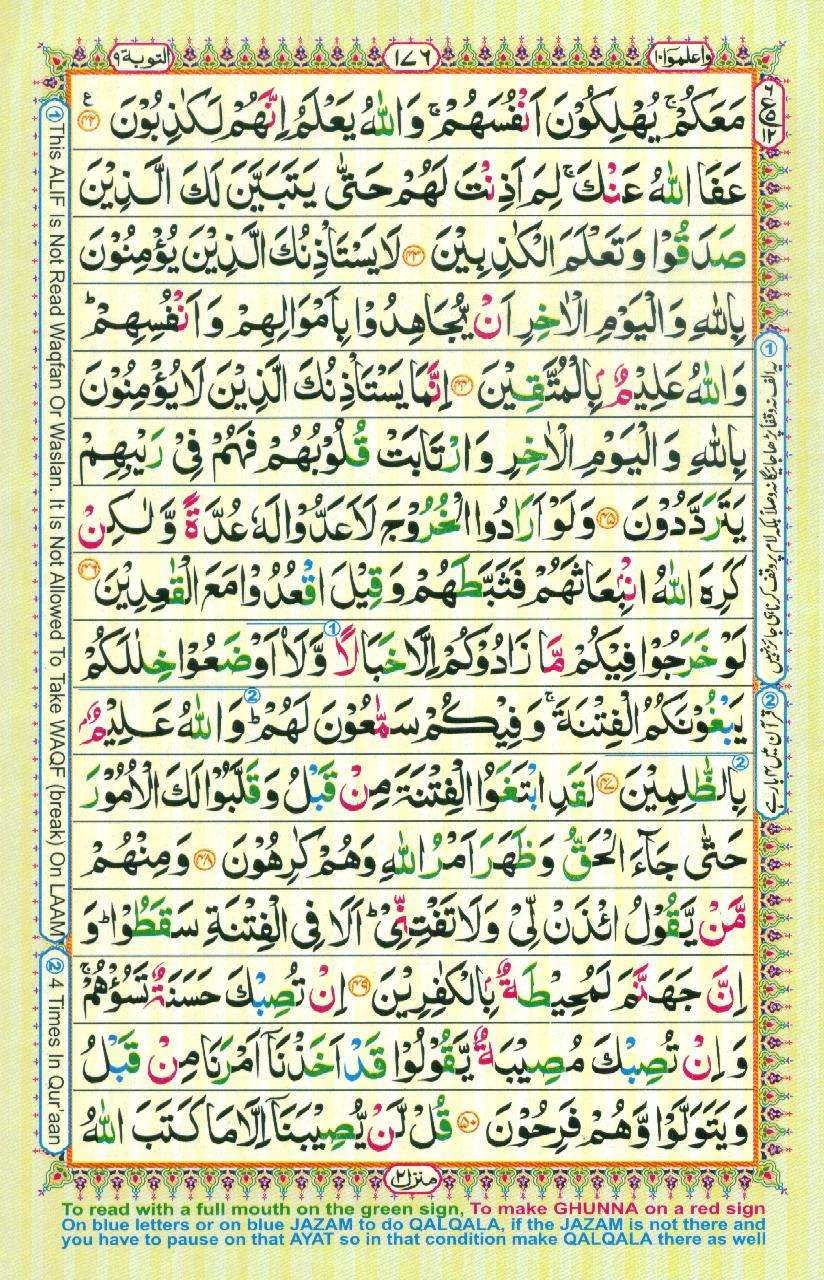 واعلموا١٠ ١٧٦ التوبة٩
مَعَكُمْ ۚ يُهْلِكُوْنَ اَنْفُسَهُمْ ۚ وَاللّٰهُ يَعْلَمُ اِنَّهُمْ لَكٰذِبُوْنَ ﴿۴۲﴾ ع
عَفَا اللّٰهُ عَنْكَ ۚ لِمَ اَذِنْتَ لَهُمْ حَتّٰى يَتَبَيَّنَ لَكَ الَّذِيْنَ
صَدَقُوْا وَتَعْلَمَ الْكٰذِبِيْنَ ﴿۴۳﴾ لَا يَسْتَاْذِنُكَ الَّذِيْنَ يُؤْمِنُوْنَ
بِاللّٰهِ وَالْيَوْمِ الْاٰخِرِ اَنْ يُّجَاهِدُوْا بِاَمْوَالِهِمْ وَاَنْفُسِهِمْ ؕ
وَاللّٰهُ عَلِيْمٌۢ بِالْمُتَّقِيْنَ ﴿۴۴﴾ اِنَّمَا يَسْتَاْذِنُكَ الَّذِيْنَ لَا يُؤْمِنُوْنَ
بِاللّٰهِ وَالْيَوْمِ الْاٰخِرِ وَارْتَابَتْ قُلُوْبُهُمْ فَهُمْ فِىْ رَيْبِهِمْ
يَتَرَدَّدُوْنَ ﴿۴۵﴾ وَلَوْ اَرَادُوا الْخُرُوْجَ لَاَعَدُّوْا لَهٗ عُدَّةً وَّلٰكِنْ
كَرِهَ اللّٰهُ انْۢبِعَاثَهُمْ فَثَبَّطَهُمْ وَقِيْلَ اقْعُدُوْا مَعَ الْقٰعِدِيْنَ ﴿۴۶﴾
لَوْ خَرَجُوْا فِيْكُمْ مَّا زَادُوْكُمْ اِلَّا خَبَالًا وَّلَا۟اَوْضَعُوْا خِلٰلَكُمْ
يَبْغُوْنَكُمُ الْفِتْنَةَ ۚ وَفِيْكُمْ سَمّٰعُوْنَ لَهُمْ ؕ وَاللّٰهُ عَلِيْمٌۢ
بِالظّٰلِمِيْنَ ﴿۴۷﴾ لَقَدِ ابْتَغَوُا الْفِتْنَةَ مِنْ قَبْلُ وَقَلَّبُوْا لَكَ الْاُمُوْرَ
حَتّٰى جَآءَ الْحَقُّ وَظَهَرَ اَمْرُ اللّٰهِ وَهُمْ كٰرِهُوْنَ ﴿۴۸﴾ وَمِنْهُمْ
مَّنْ يَّقُوْلُ ائْذَنْ لِّىْ وَلَا تَفْتِنِّىْ ؕ اَلَا فِى الْفِتْنَةِ سَقَطُوْا ؕ وَ
اِنَّ جَهَنَّمَ لَمُحِيْطَةٌۢ بِالْكٰفِرِيْنَ ﴿۴۹﴾ اِنْ تُصِبْكَ حَسَنَةٌ تَسُؤْهُمْ ۚ
وَاِنْ تُصِبْكَ مُصِيْبَةٌ يَّقُوْلُوْا قَدْ اَخَذْنَاۤ اَمْرَنَا مِنْ قَبْلُ
وَيَتَوَلَّوْا وَّهُمْ فَرِحُوْنَ ﴿۵۰﴾ قُلْ لَّنْ يُّصِيْبَنَاۤ اِلَّا مَا كَتَبَ اللّٰهُ
منزل٢
① یہ الف نہ وقفاً پڑھا جائیگا نہ وصلاً بلکہ لام پر وقف کرنا ہی جائز نہیں
② قرآن میں ۴ بار ہے
① This ALIF Is Not Read Waqfan Or Waslan. It Is Not Allowed To Take WAQF (break) On LAAM
② 4 Times In Qur'aan
To read with a full mouth on the green sign, To make GHUNNA on a red sign
On blue letters or on blue JAZAM to do QALQALA, if the JAZAM is not there and
you have to pause on that AYAT so in that condition make QALQALA there as well